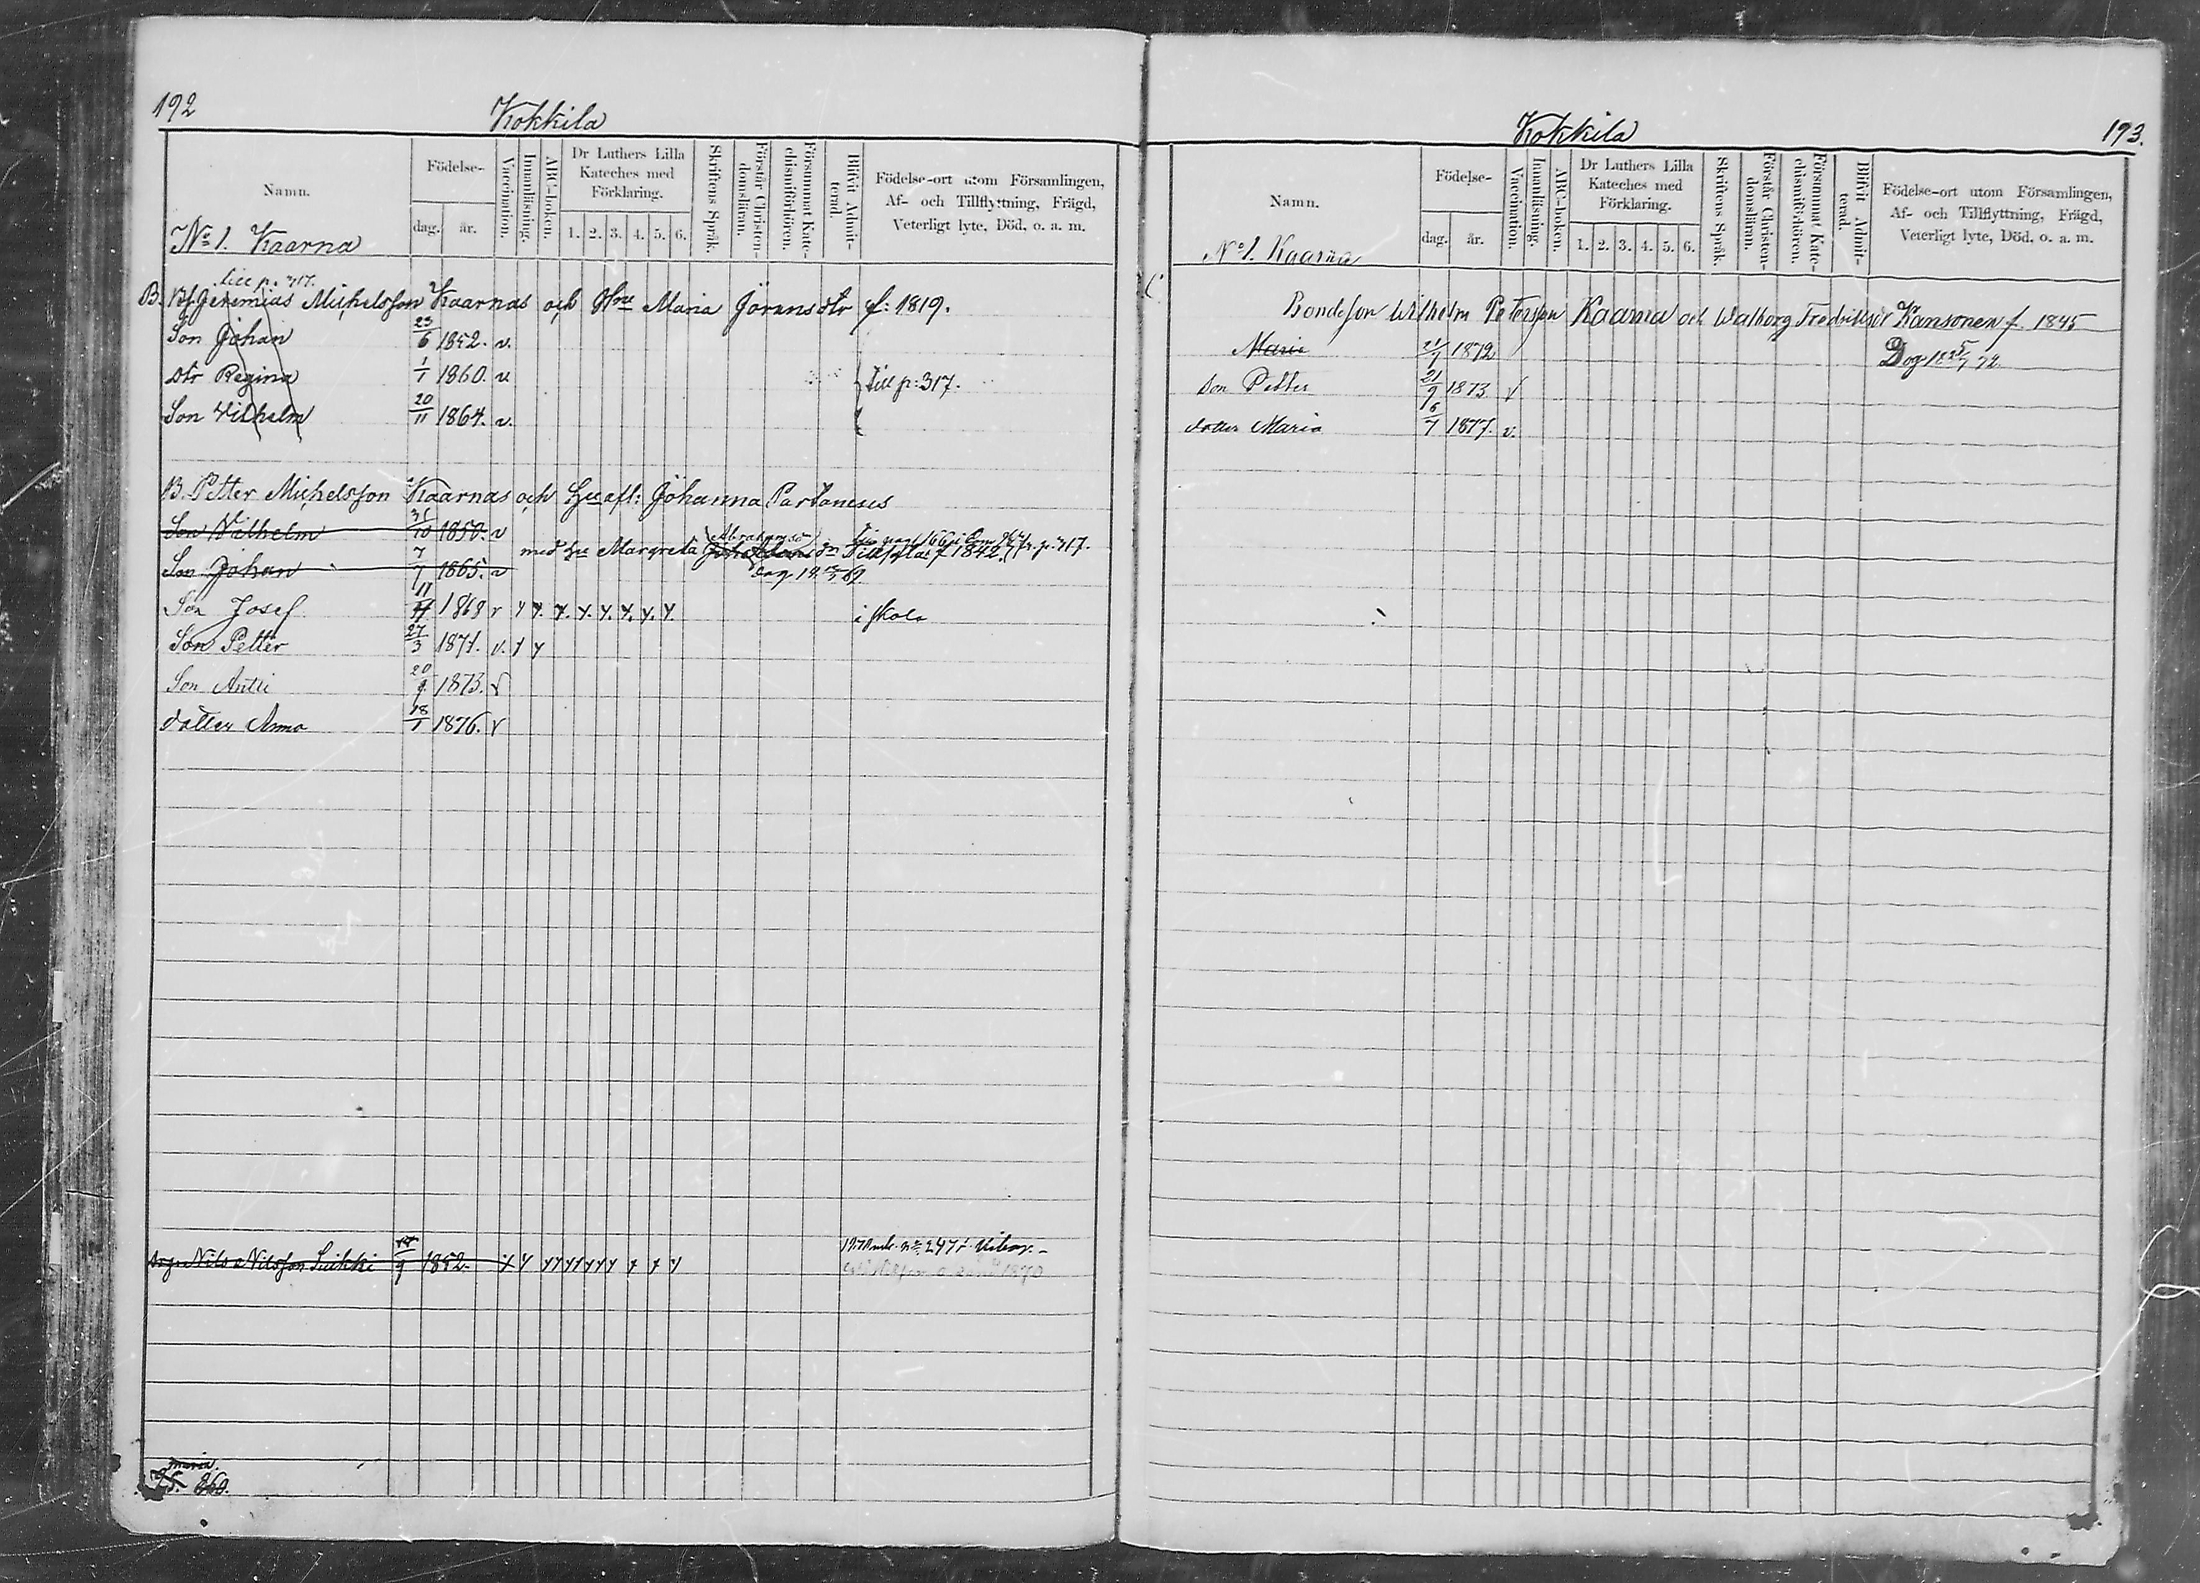 192
Kokkila
Namn.
Födelse-
dag.
år.
Vaccination.
Innanläsning.
ABC-boken.
Dr Luthers Lilla
Kateches med
Förklaring.
1. 2. 3. 4. 5. 6.
Skriftens Språk.
Förstår Christen-
domsläran.
Försummat Kate-
chismiförhören.
Blifvit Admit-
terad.
Födelse-ort utom Församlingen,
Af- och Tillflyttning, Frägd,
Veterligt lyte, Död, o. a. m.
No 1. Kaarna
till p. 317.
B. Bf. Jeremias Michelsson Kaarnas och Hru Maria Jöransdtr f: 1819.
Son Johan 23/6 1852. v.
dtr Regina 1/1 1860. v.
till p: 317.
Son Vilhelm 20/11 1864. v.
B. Petter Michelsson Kaarnas och Johanna Partaneus
Son Wilhelm 31/10 1850. v
Abrahamsd
med Margreta f 1842. p. 317.
Son Johan 7/7 1865. v
Son Josef 11 1868 v y y. y. y. y. y. y. y.
i skola
Son Petter 27/3 1871. v. y y
Son Antti 20/9 1873. v
dotter Anna 18/1 1876. v
Nils Nilsson Suikki 9 1852. y y y y y y y y y y y
1870 247
1870
maria
860.
Kokkila
193.
Namn.
Födelse-
dag.
år.
Vaccination.
Innanläsning.
ABC-boken.
Dr Luthers Lilla
Kateches med
Förklaring.
1. 2. 3. 4. 5. 6.
Skriftens Språk.
Förstår Christen-
domsläran.
Försummat Kate-
chismiförhören.
Blifvit Admit-
terad.
Födelse-ort utom Församlingen,
Af- och Tillflyttning, Frägd,
Veterligt lyte, Död, o. a. m.
No 1. Kaarna
Bondeson Wilhelm Petersson Kaarna och Walborg Fredriksdt Kansonen f. 1845
Maria 21/1 1872
Son Petter 21/9 1873 v
dotter Maria 6/7 1877. v.